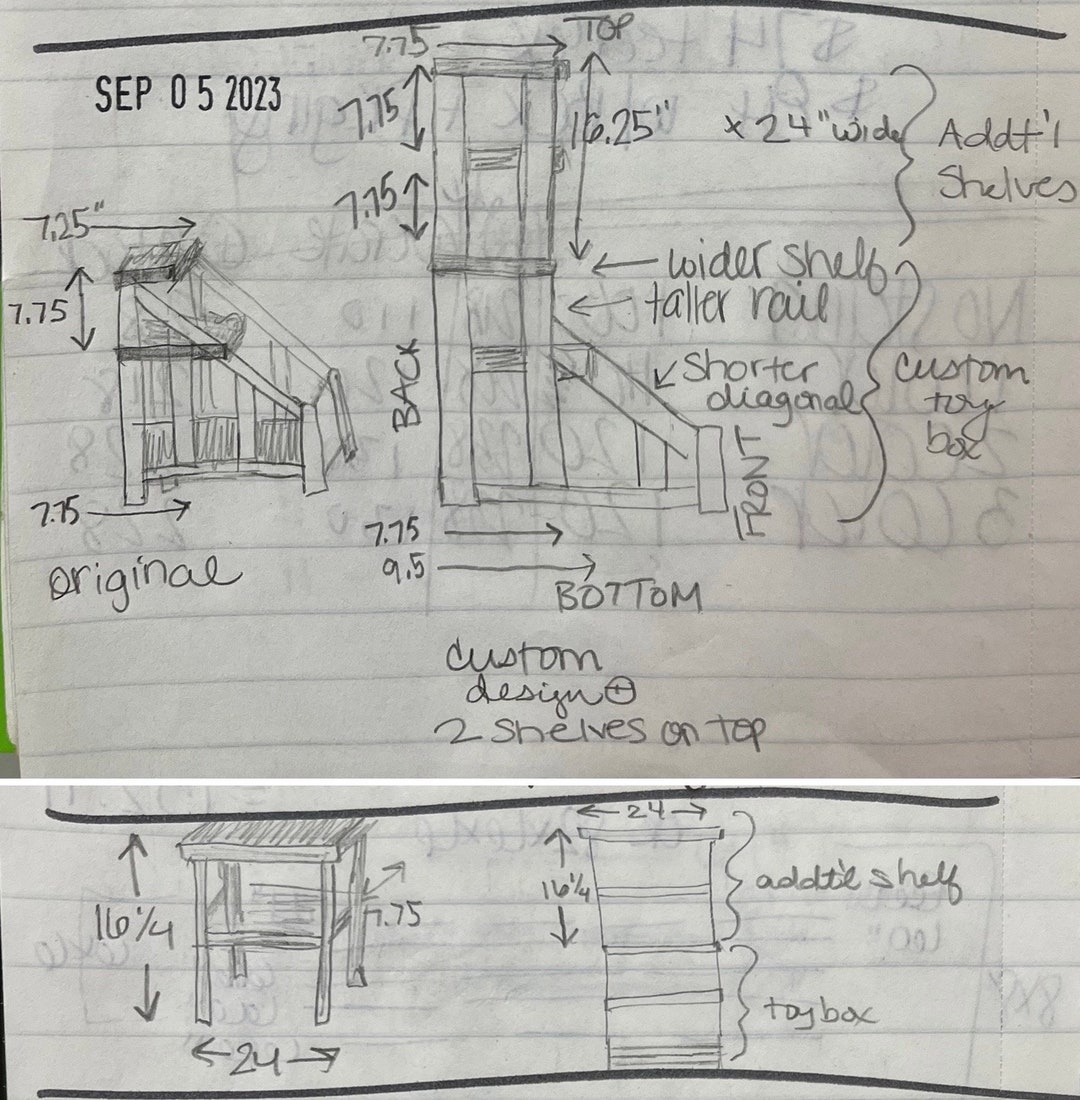 TOP
7.75
SEP 05 2023
7.75
16.25"
x 24" wide
Addt'l
Shelves
7.75
7.25"
wider shelf
7.75
taller rail
BACK
shorter
diagonal
custom
toy
box
FRONT
7.75
7.75
9.5
original
BOTTOM
custom
design ⊕
2 shelves on top
24
16 1/4
7.75
24
16 1/4
addt'l shelf
toybox